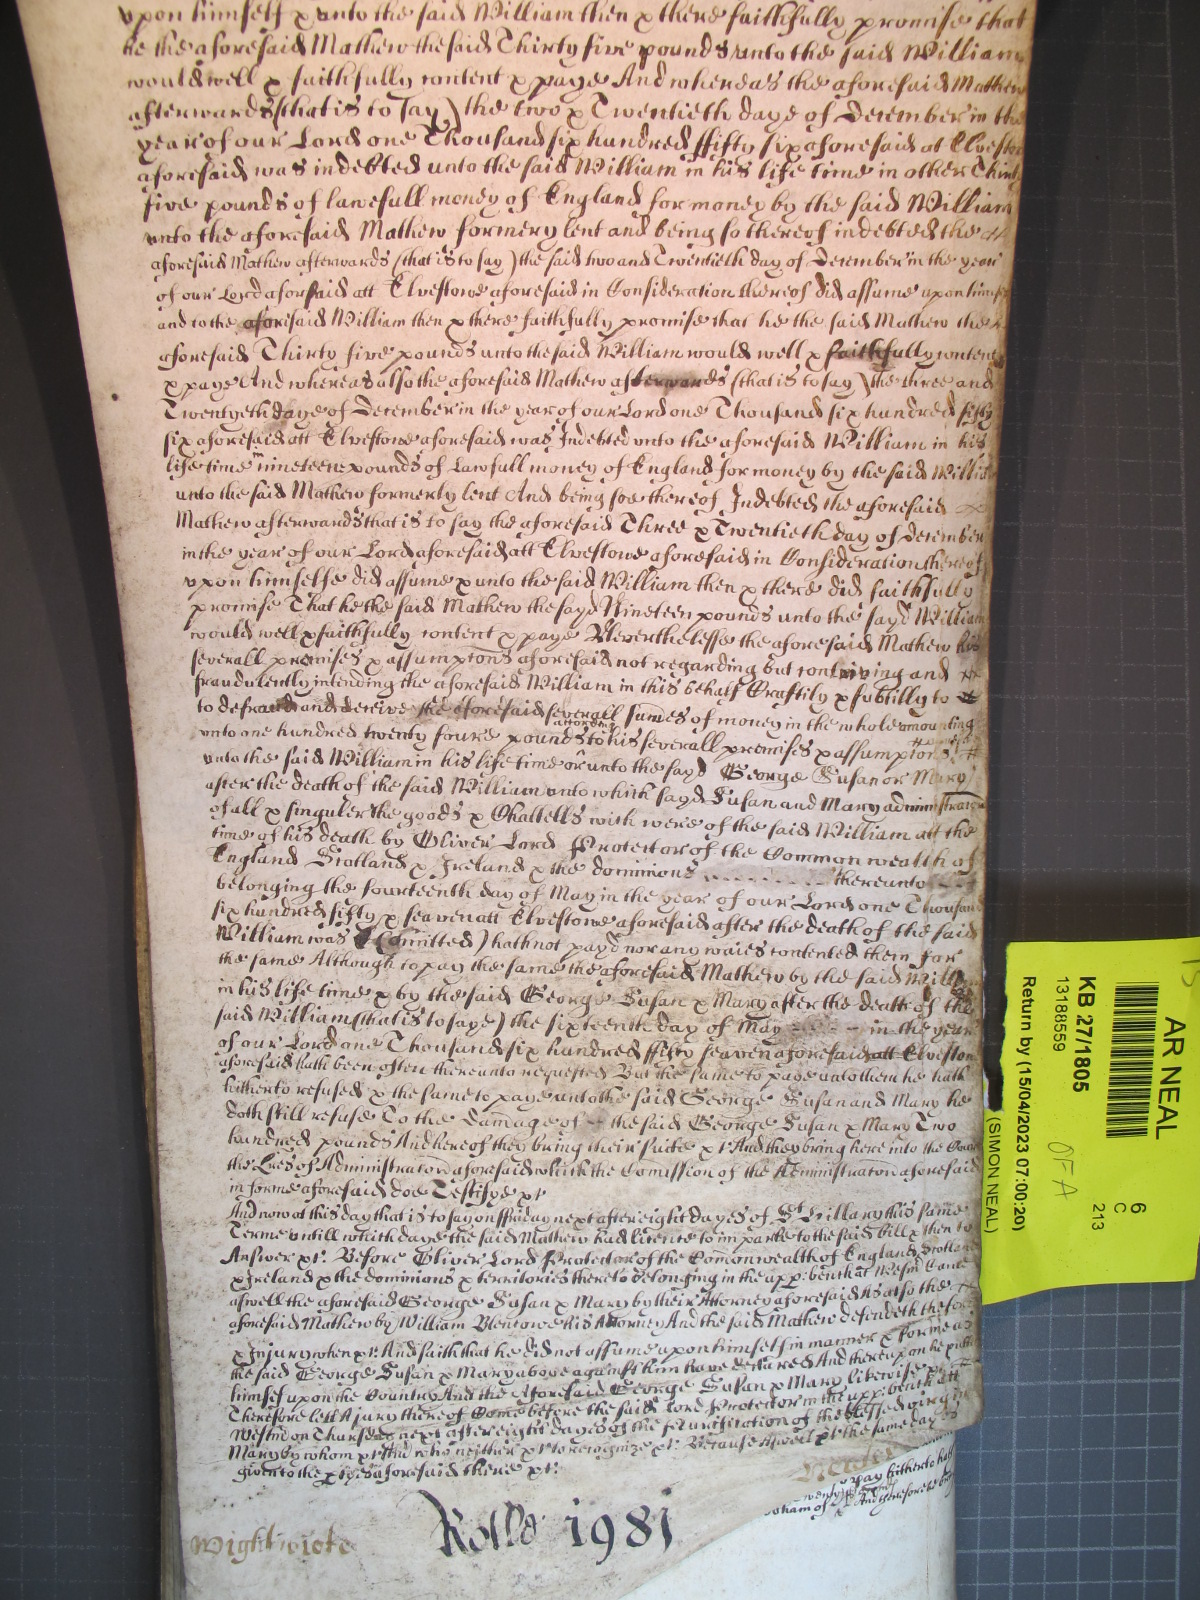 upon himself & unto the said William then & there faithfully promise that
he the aforesaid Mathew the said Thirty five pounds unto the said William
would well & faithfully content & paye And whereas the aforesaid Mathew
afterwards (that is to say) the two & Twentieth daye of December in the
year of our Lord one Thousand six hundred ffifty six aforesaid at Elveston
aforesaid was indebted unto the said William in his life time in other Thirty
five pounds of lawfull money of England for money by the said William
unto the aforesaid Mathew formery lent and being so thereof indebted the
aforesaid Mathew afterwards (that is to say) the said two and Twentieth day of December in the year
of our Lord aforsaid att Elvestone aforesaid in Consideration thereof did assume upon himself
and to the aforesaid William then & there faithfully promise that he the said Mathew the
aforesaid Thirty five pounds unto the said William would well & faithfully content
& paye And whereas also the aforesaid Mathew afterwards (that is to say) the three and
Twentyeth daye of December in the year of our Lord one Thousand six hundred fifty
six aforesaid att Elvestone aforesaid was Indebted unto the aforesaid William in his
life time in nineteene pounds of Lawfull money of England for money by the said William
unto the said Mathew formerly lent And being soe thereof Indebted the aforesaid
Mathew afterwards that is to say the aforesaid Three & Twentieth day of December
in the year of our Lord aforesaid att Elvestone aforesaid in Consideration thereof
upon himselfe did assume & unto the said William then & there did faithfully
promise That he the said Mathew the sayd Nineteen pounds unto the sayd William
would well & faithfully content & paye Neverthelesse the aforesaid Mathew his
severall promises & assumptons aforesaid not regarding but contriving and
fraudulently intending the aforesaid William in this behalf Craftily & subtilly to
to defraud and deceive the aforesaid severall sumes of money in the whole amounting
unto one hundred twenty foure pounds according to his severall promises & assumptons
unto the said William in his life time or unto the sayd George Susan or Mary
after the death of the said William unto which sayd Susan and Mary administracon
of all & singuler the goods & Chattells wich were of the said William att the
time of his death by Oliver Lord Protector of the Common wealth of
England Scotland & Ireland & the dominions thereunto
belonging the fourteenth day of May in the year of our Lord one Thousand
six hundred fifty & seaven att Elvestone aforesaid after the death of the said
William was (Comitted) hath not payd nor any waies contented them for
the same Although to pay the same the aforesaid Mathew by the said William
in his life time & by the said George Susan & Mary after the death of the
said William (that is to saye) the sixteenth day of May in the year
of our Lord one Thousand six hundred ffifty seaven aforesaid att Elveston
aforesaid hath been often thereunto requested But the same to paye unto them he hath
hitherto refused & the same to paye unto the said George Susan and Mary he
doth still refuse To the damage of the said George Susan & Mary Two
hundred pounds And hereof they bring their suite &c And they bring here into the Court
the Lres of Administraton aforesaid which the Comission of the Administraton aforesaid
in forme aforesaid doe Testifye &c
And now at this day that is to say on ffriday next after eight dayes of St Hillary this same
Terme untill which daye the said Mathew had licence to imparle to the said bill & then to
Answer &c Before Oliver Lord Protector of the Comonwealth of England Scotland
& Ireland & the dominions & territories thereto belonging in the upp: bench at Westm Came
aswell the aforesaid George Susan & Mary by their Attorney aforesaid As also the
aforesaid Mathew by William his Attorney And the said Mathew defendeth the force
& Injury when &c And saith that he did not assume upon himself in manner & forme as
the said George Susan & Mary above against him have declared And thereupon he putteth
himself upon the Country And the Aforesaid George Susan & Mary likewise &c
Therefore lett A jury thereof Come before the said Lord Protector in the upp: bench att
Westm on Thursday next after eight dayes of the Purification of the blessed virgin
Mary by whom &c And who neither &c to recognize &c Because Aswell &c the same day is
given to the aforesaid there &c
pay hitherto hath
And therefore he
Wightwicke
Rollo 1981
AR NEAL
6
C
213
KB 27/1805
13188559
OFA
Return by (15/04/2023 07:00:20)
(SIMON NEAL)